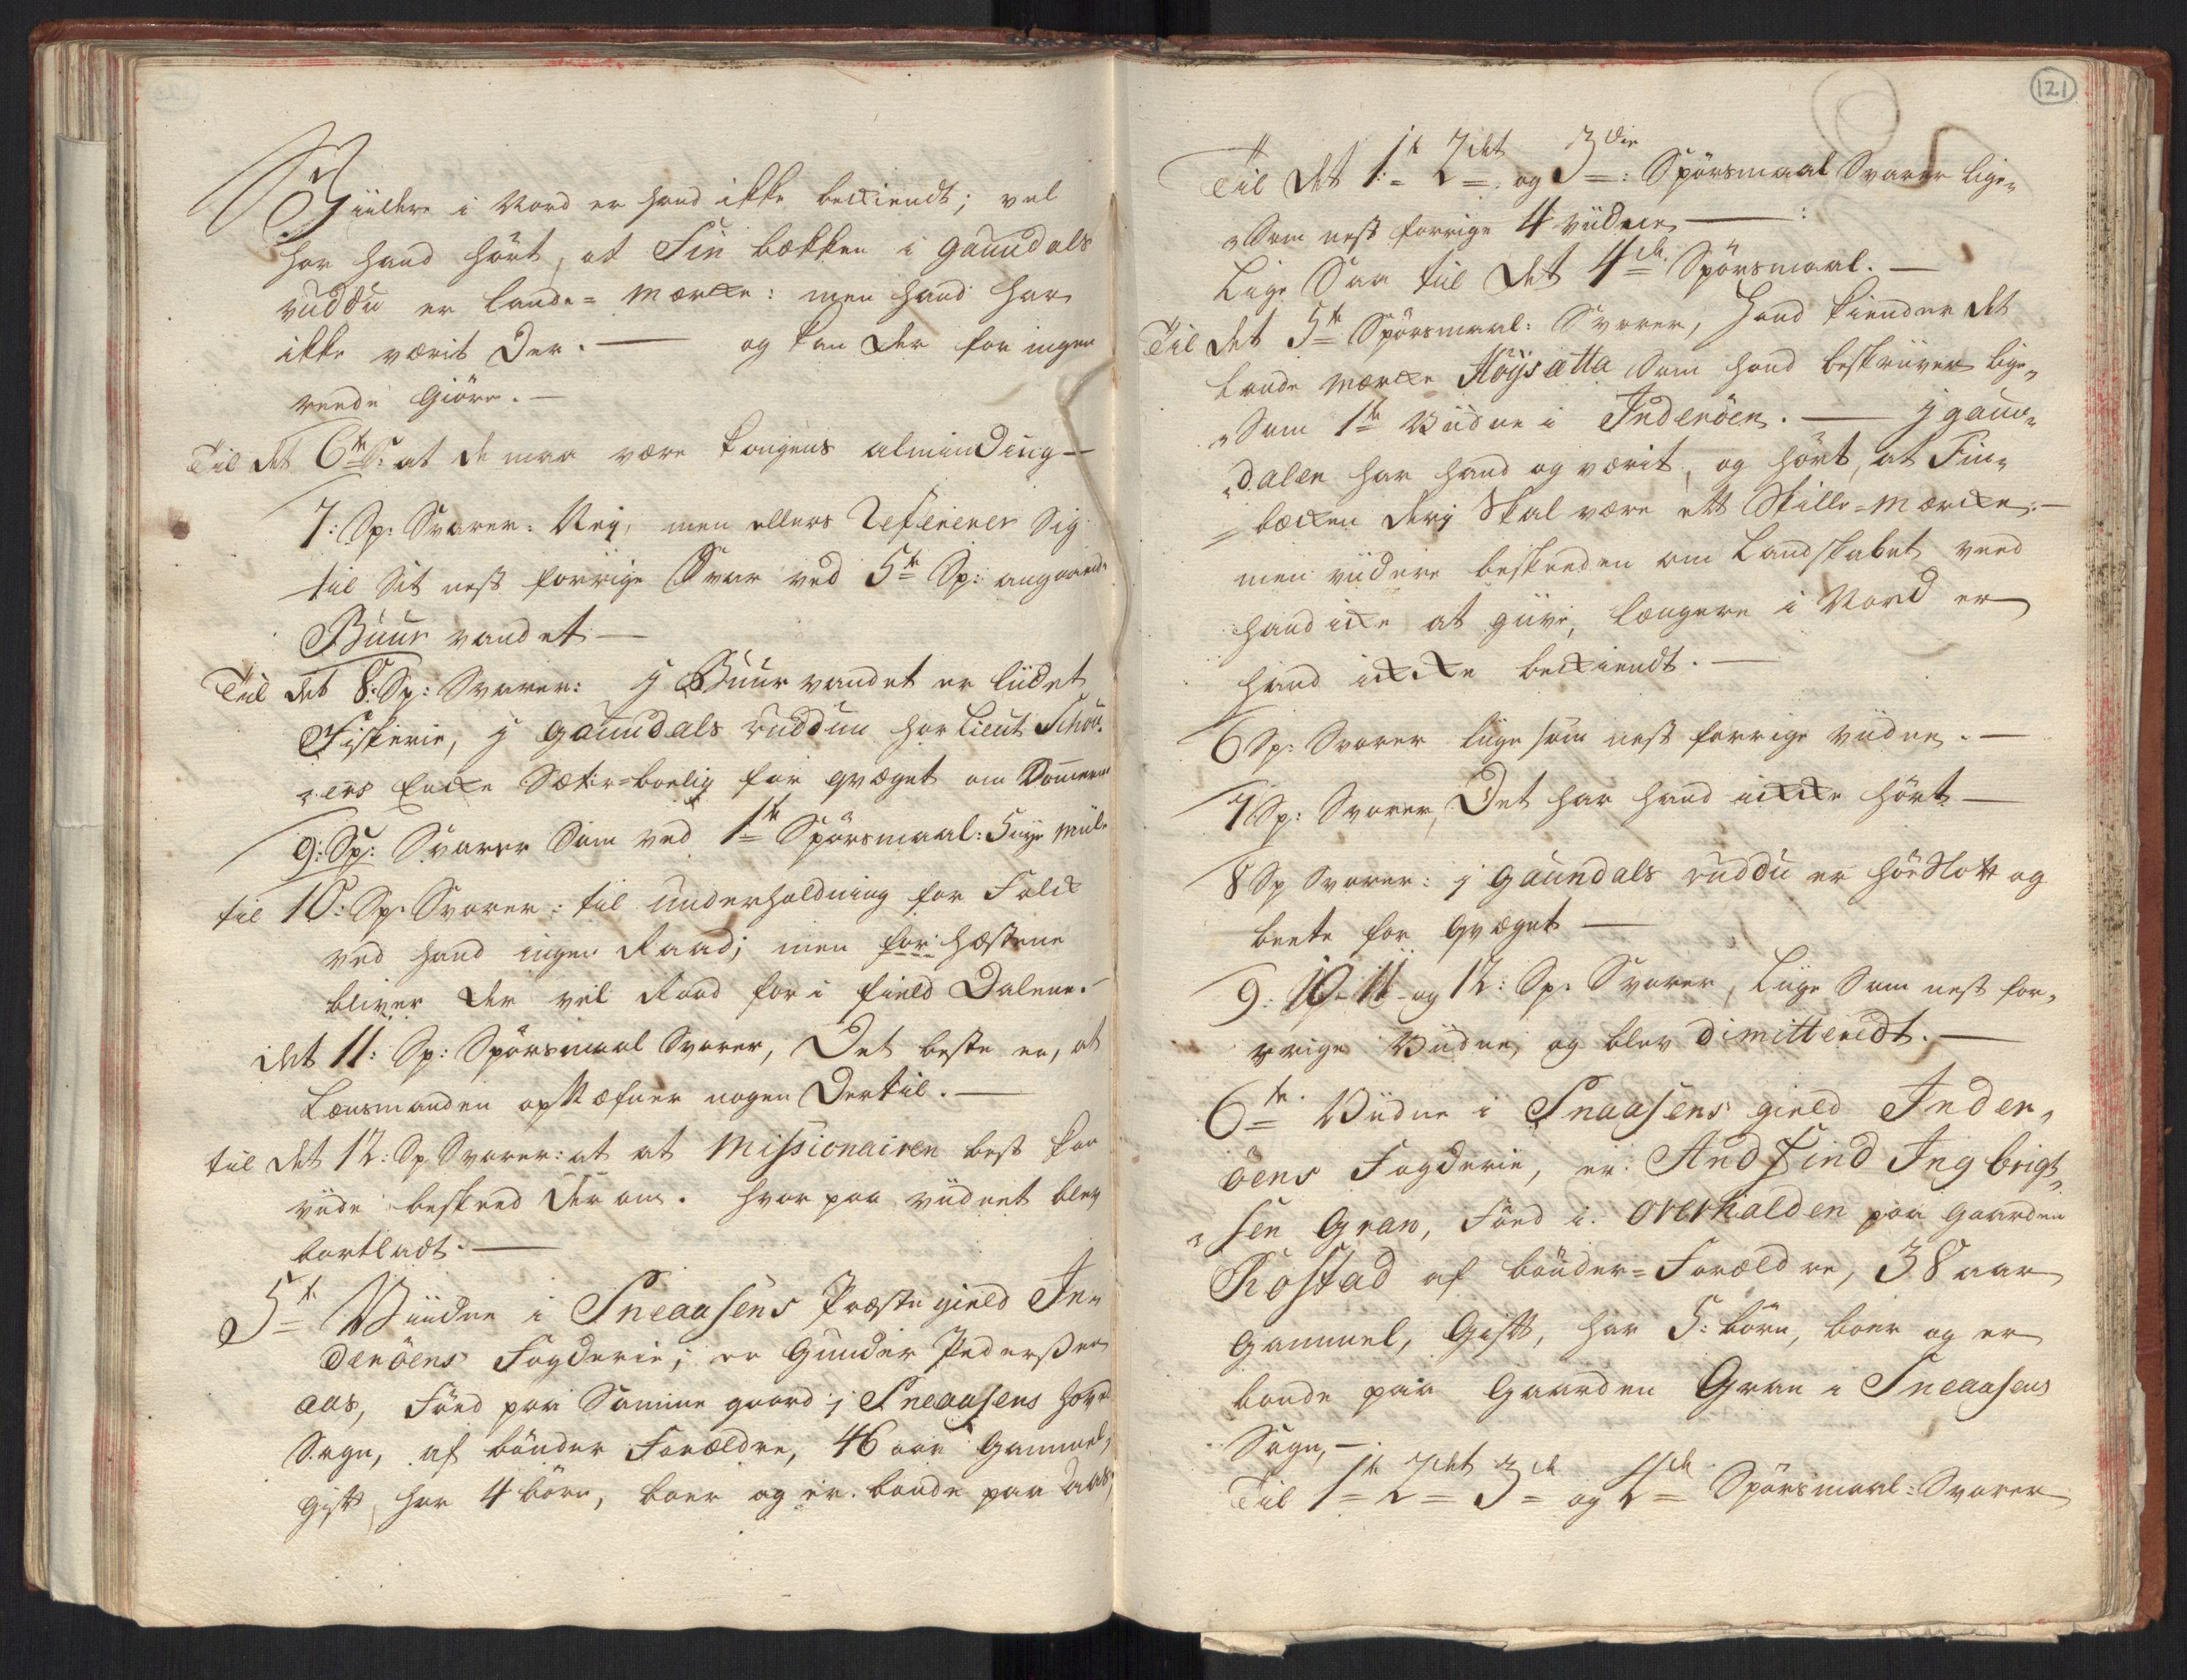 Viidere i Nord er hand ikke beckiendt; vel
har hand hört, at Fin bækken i Gaundals
ruddu er lande= Mærcke: men hand har
ikkeværit Der. — og kan der for ingen
reede Giöre. —
Til det 6te S: at de maa være kongens alminding —
7: Sp: Svarer: Nej, men ellers Refererer Sig
til Sit nest forrige Svar ved 5te Sp: angaaende
Buur vandet —
Til det 8: Sp: Svarer: J Buur vandet er liidet
Fiskerie, J Gaundals ruddun har Lieut Schou,
„ers Encke Sæter=boelig for qvæget om Sommeren
9: Sp: Svarer Som ved 1te Spörsmaal: 5 nye Miile
til 10: Sp: Svarer: til Underholdning for Folck
ved hand ingen Raad; men for hæstene
bliver der vel Raad for i field Dalene. —
det 11: Sp: Spörsmaal Svarer, Det beste er, at
Lænsmanden opNæfner nogen Dertil. —
til det 12: Sp Svarer: at at Missionairen best kan
viide beskeed Der om. hvor paa viidnet blev
bortladt. —
5te Viidne i Sneaasens Præste gield In„
deröens Fogderie; er Gunder Pedersen
aas, Föed paa Samme gaard j Sneaasens hoved
Sogn, af bönder Forældre, 46 aar Gammel,
gift, har 4 börn, boer og er bonde paa aas,
121
Til det 1te 2det og 3die: Spörsmaal Svarer lige„
„Som nest forrige 4 viidne, — :
Lige Saa til det 4de Spörsmaal. —
Til det 5te Spörsmaal: Svarer, Hand kiender det
Lande Mærcke Höysætta Som hand beskriiver lige„
„Som 1te Viidne i Inderöen. — J Gaun„
„dalen har hand og værit, og hört, at Fin„
„bæcken Derj Skal være ett Skille=Mærcke; —
men viidere beskeeden om Landskabet veed
hand icke at giive, længere i Nord er
hand ickcke beckiendt. —
6 Sp: Svarer liige som nest forrige viidne. —
7 Sp: Svarer, Det har hand ickcke hört —
8 Sp Svarer: j Gaundals ruddu er höeslott og
beete for qvæget —
9: 10 - 11 - og 12: Sp: Svarer, Liige Som nest for„
„rige Viidne, og blev dimitteridt. —
6te Viidne i Snaasens gield Inder„
öens Fogderie, er: Andfind Ingbrigt„
„sen Gran, Föed i Overhalden paa Gaarden
Rostad af bönder=Forældre, 38 aar
Gammel, Gift, har 5: börn, boer og er
bonde paa Gaarden Gran i Sneaasens
Sogn, —
Til 1te 2det 3de og 4de Spörsmaal: Svarer